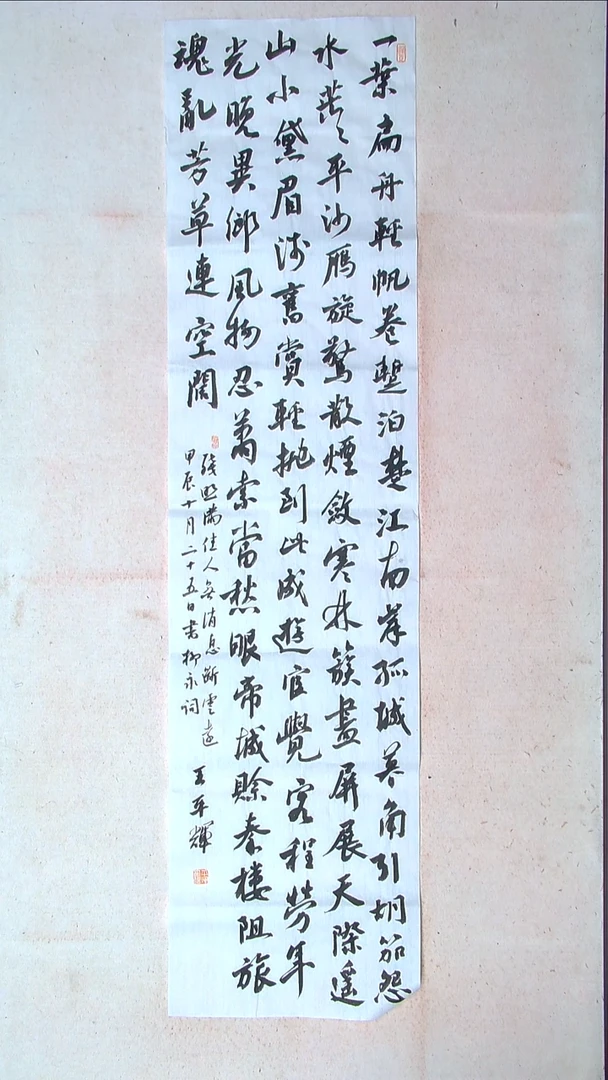 一葉扁舟輕帆卷暫泊楚江南岸孤城暮角引胡笳怨
水茫〻平沙雁旋驚散煙斂寒林簇畫屏展天際遙
山小黛眉淺舊賞輕拋到此成遊宦覺客程勞年
光晚異鄉風物忍蕭索當愁眼帝城賒秦樓阻旅
魂亂芳草連空闊
殘照滿佳人無消息斷雲遠
甲辰十月二十五日書柳永詞
王平輝